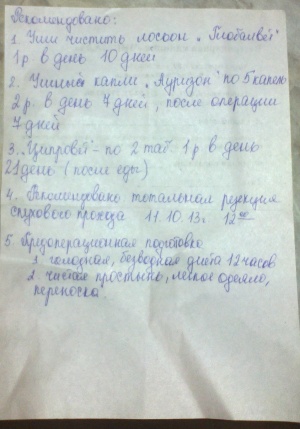 Рекомендовано:
1. Уши чистить лосьон „Глобалвет"
1 р в день 10 дней
2. Ушные капли „Ауризон" по 5 капель
2 р. в день 7 дней, после операции
7 дней
3. Ципровет - по 2 таб. 1 р в день
21 день (после еды)
4. Рекомендовано тотальная резекция
слухового прохода 11.10.13г. 12 00
5. Предоперационная подготовка
1 голодная, безводная диета 12 часов
2. чистая простынь, легкое одеяло,
переноска